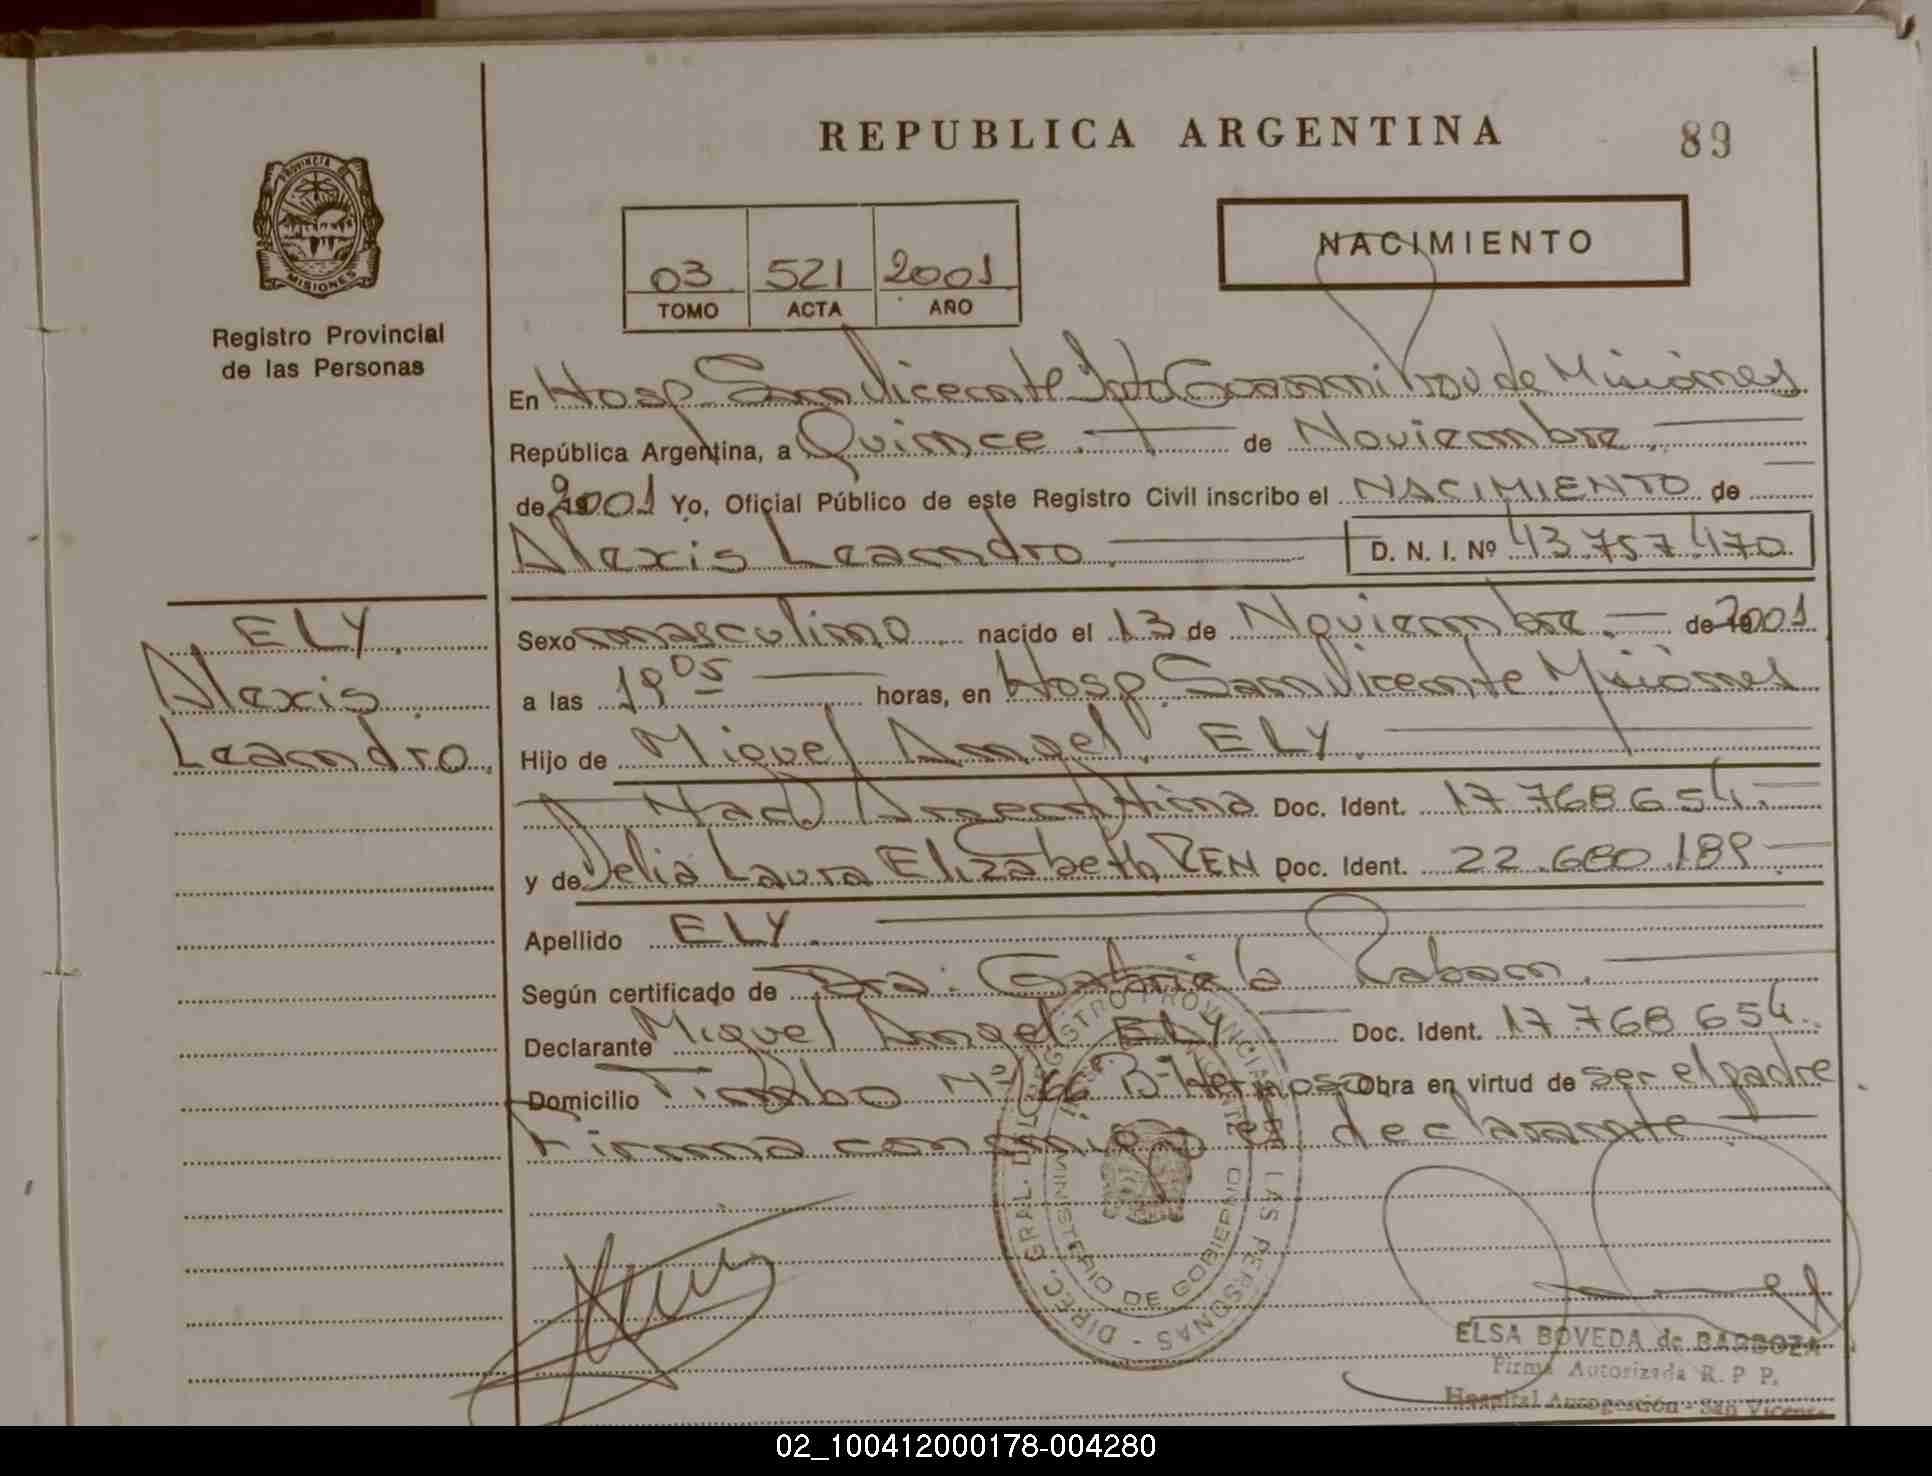 REPUBLICA ARGENTINA
89
PROVINCIA DE
MISIONES
Registro Provincial
de las Personas
03 521 2001
TOMO ACTA AÑO
NACIMIENTO
En Hosp San Vicente Dpto Guarani Prov de Misiones
República Argentina, a Quince de Noviembre
de 2001 Yo, Oficial Público de este Registro Civil inscribo el NACIMIENTO de
Alexis Leandro D. N. I. Nº 43.757.470
ELY
Alexis
Leandro
Sexo masculino nacido el 13 de Noviembre de 2001
a las 19 05 horas, en Hosp. San Vicente Misiones
Hijo de Miguel Angel ELY
Nac Argentina Doc. Ident. 17 768 654
y de Delia Laura Elizabeth ZEN Doc. Ident. 22.680.189
Apellido ELY
Según certificado de Dra. Gabriela Raban
Declarante Miguel Angel ELY Doc. Ident. 17 768 654
Domicilio Timbo Nº 66 Bº Hermoso Obra en virtud de ser el padre
Firma conmigo el declarante
DIREC. GRAL. DEL REGISTRO PROVINCIAL DE LAS PERSONAS
MINISTERIO DE GOBIERNO
ELSA BOVEDA de BARBOZA
Firma Autorizada R. P P.
Hospital Autogestión - San Vicente
02_100412000178-004280